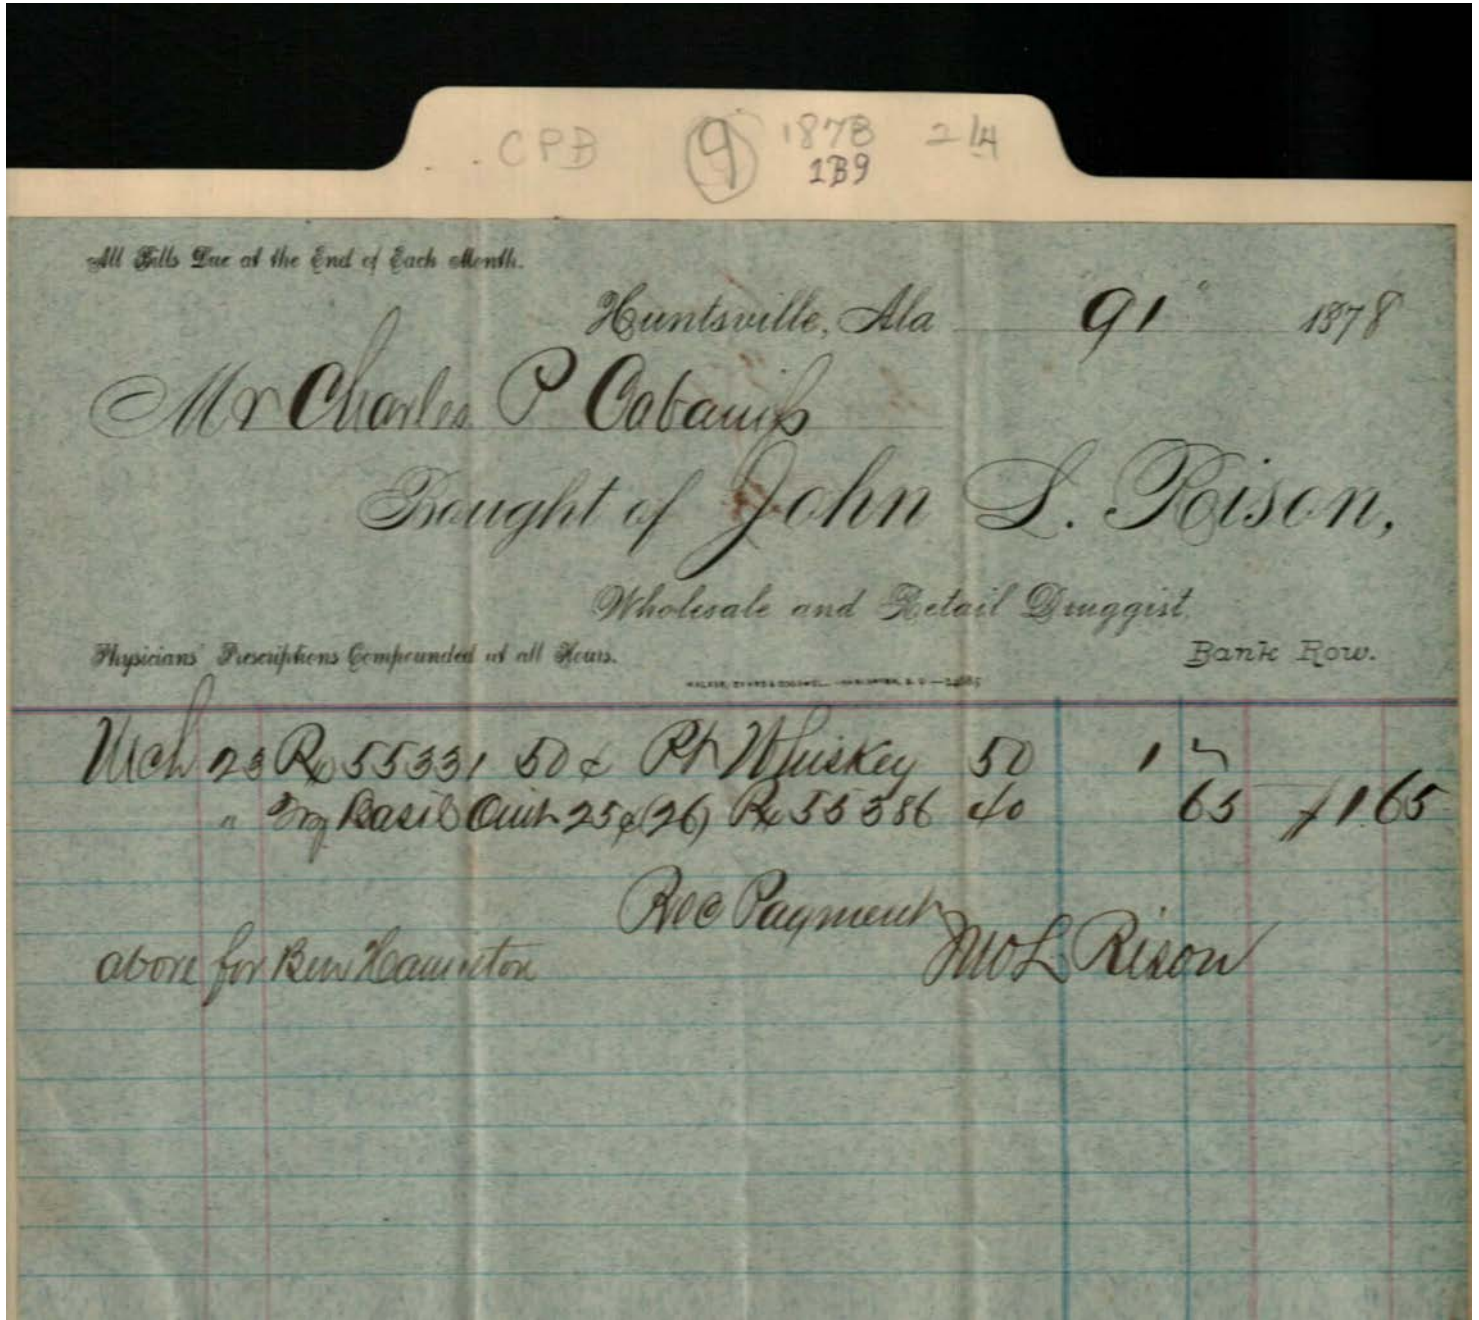 CPB 9 1878 2 1/4
1B9
All Bills Due at the End of Each Month.
Huntsville, Ala 91" 1878
Mr Charles P Cabaniss
Bought of John L. Rison,
Wholesale and Retail Druggist.
Physicians' Prescriptions Compounded at all Hours. Bank Row.
WALKER, EVANS & COGSWELL, CHARLESTON, S. C.
Mch 23 Rx 55331 50¢ Pt Whiskey 50 1 "
" Basil Oint 25¢ (26) Rx 55386 40 65 $1.65
Rec Payment
above for Ben Jno L Rison